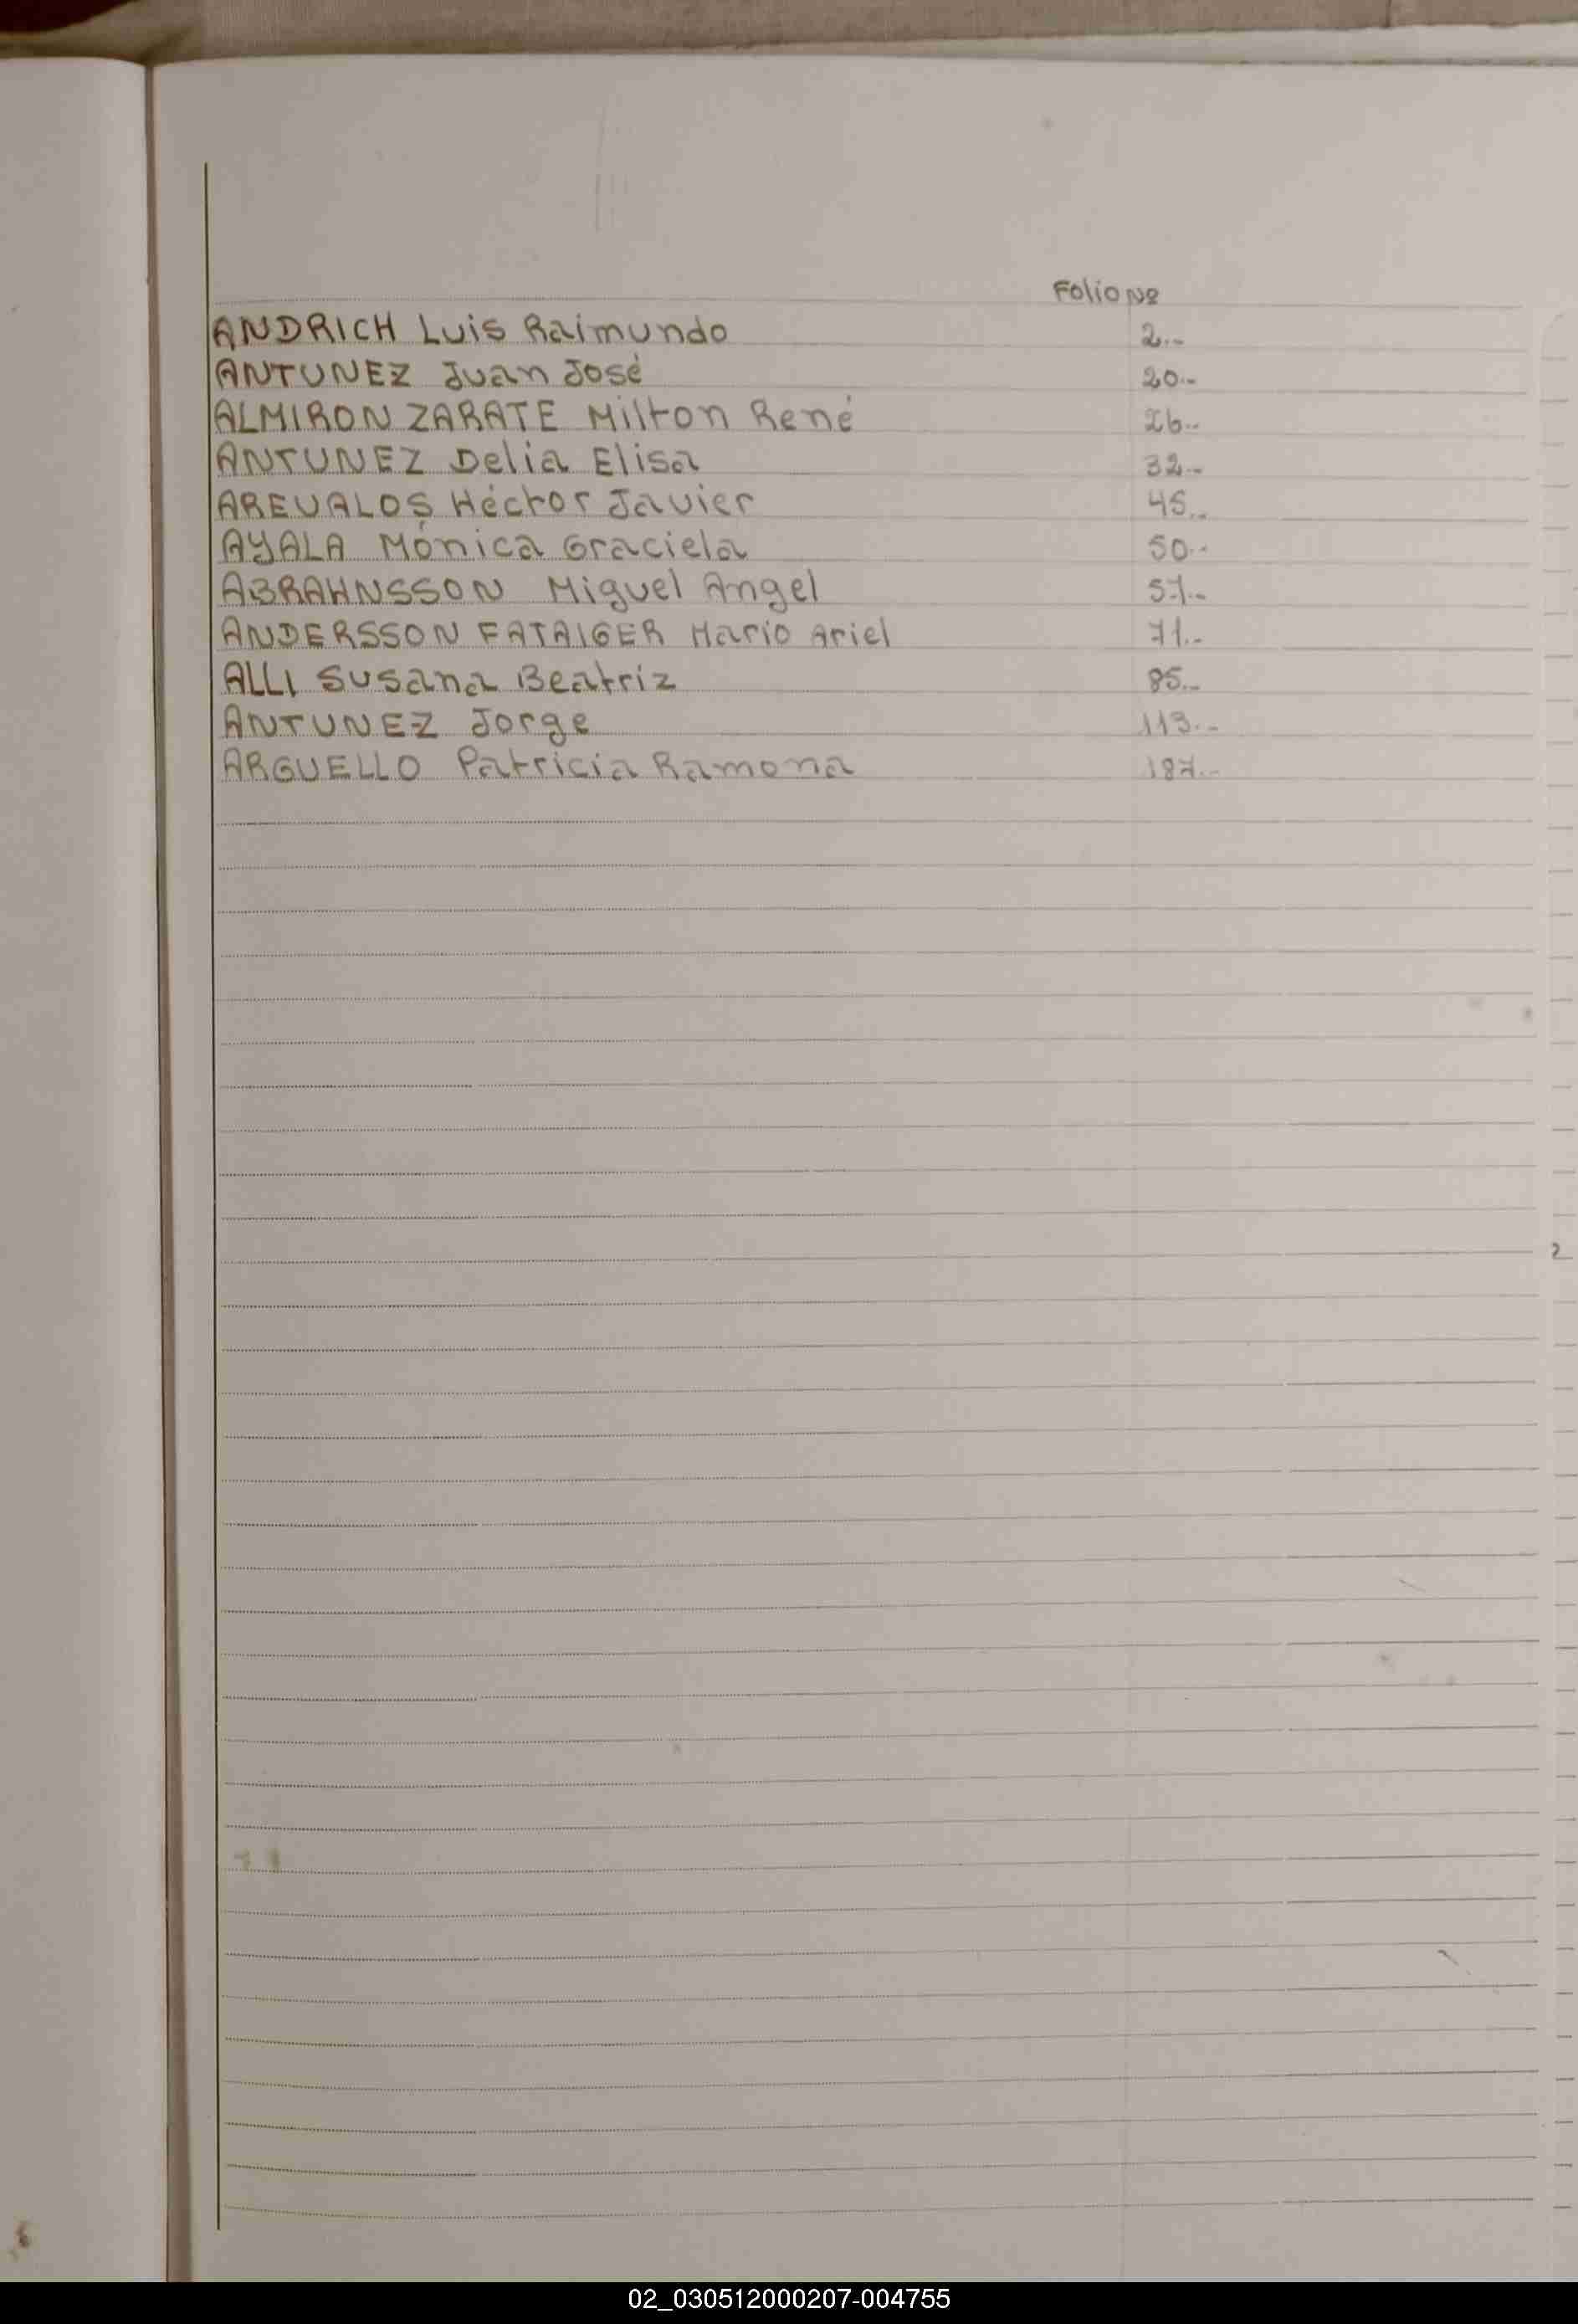 Folio Nº
ANDRICH Luis Raimundo 2.--
ANTUNEZ Juan José 20.--
ALMIRON ZARATE Milton René 26.--
ANTUNEZ Delia Elisa 32.--
AREVALOS Héctor Javier 45.--
AYALA Mónica Graciela 50.--
ABRAHNSSON Miguel Angel 57.--
ANDERSSON FATAIGER Mario Ariel 71.--
ALLI Susana Beatriz 85.--
ANTUNEZ Jorge 113.--
ARGUELLO Patricia Ramona 187.--
2
02_030512000207-004755